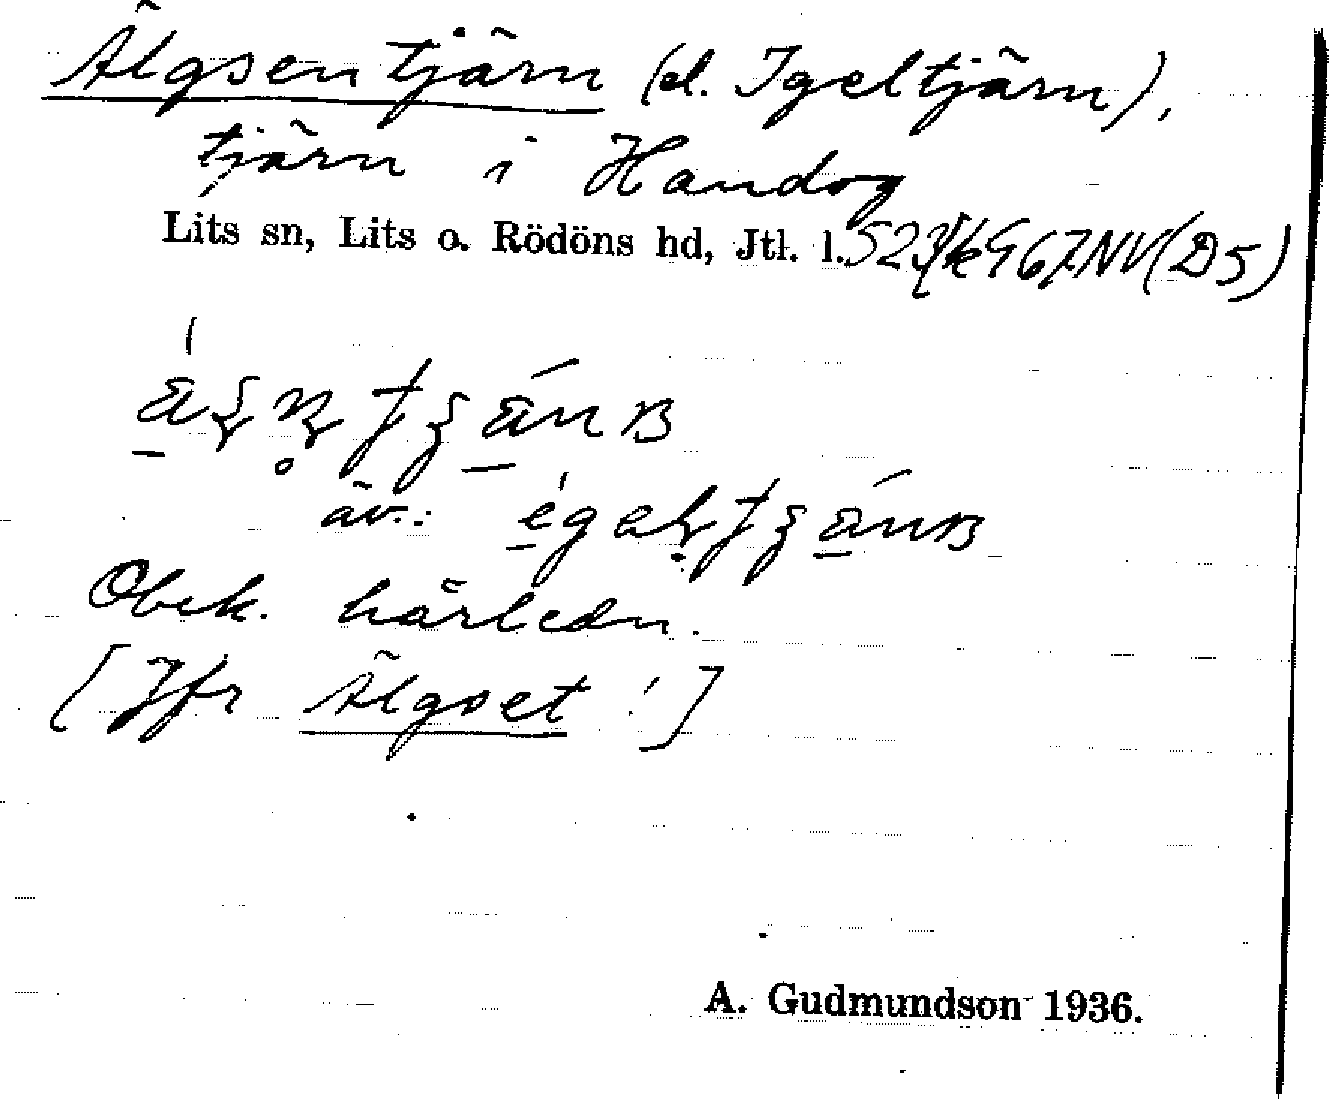 Älgsentjärn (el. Igeltjärn),
tjärn i Handog
Lits sn, Lits o. Rödöns hd, Jtl. l.
äv.:
Obek. härledn.
[Jfr Älgset !]
A. Gudmundson 1936.